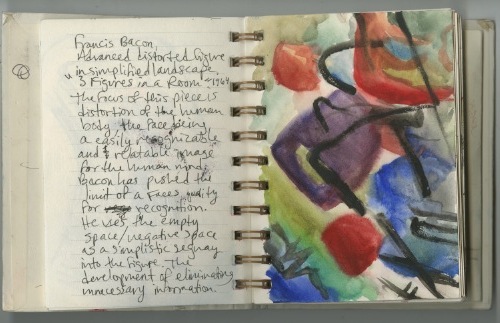 Francis Bacon,
Advanced distorted figure
in simplified landscape,
"3 Figures in a Room" 1964
The focus of this piece is
distortion of the human
body, the face being
a easily recognizable
and relatable image
for the human mind.
Bacon has pushed the
limit of a faces quality
for recognition.
He uses the empty
space/negative space
as a simplistic segway
into the figure. The
development of eliminating
unnecessary information.